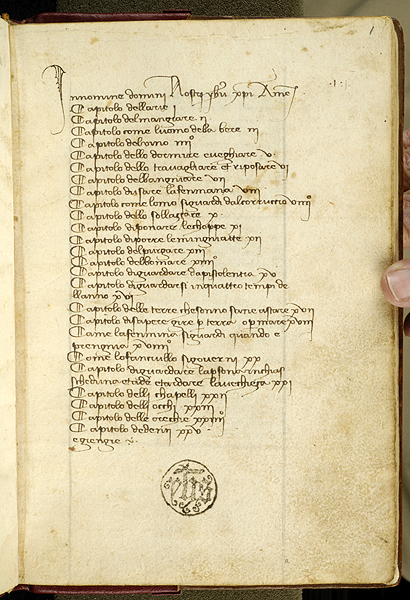 1
Innomine domini Nostri yhu xpi Amen
Capitolo dellarie i
Capitolo del mangiare ii
Capitolo come luomo debia bere iii
Capitolo del uino iiii
Capitolo dello dormire e ueghiare v
Capitolo dello trauaghiare et riposare vi
Capitolo dellangnitore vii
Capitolo dusare la femmina viii
Capitolo come lomo si guardi dal corruccio viiii
Capitolo dello sollaççare x
Capitolo di ponare le choppe xi
Capitolo di porre le mingniatte xii
Capitolo del purgare xiii
Capitolo del bomare xiiii
Capitolo di guardare da pistolentia xv
Capitolo di guardarsi in quattro tempi de
llanno xvi
Capitolo delle terre che sonno sane a stare xvii
Capitolo di sapere gire p terra o p mare xviii
Come la femmina si guardi quando e
prengnia xviiii
Come lo fanciullo si gouerni xx
Capitolo di guardare la psona in chas
scheduna etade et adare la uecheça xxi
Capitolo delli chapelli xxii
Capitolo delli occhi xxiii
Capitolo delle orecchie xxiiii
Capitolo dedenti xxv
e giengie